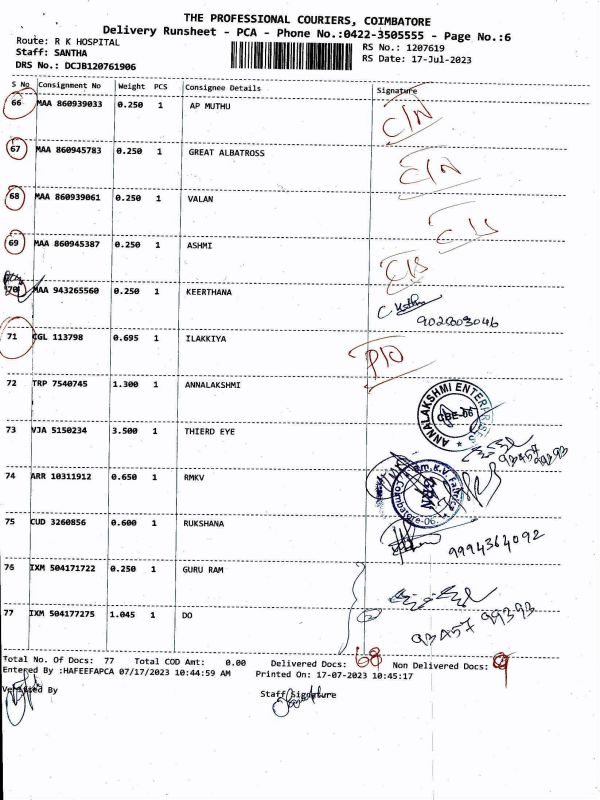 THE PROFESSIONAL COURIERS, COIMBATORE
Delivery Runsheet - PCA - Phone No.:0422-3505555 - Page No.:6
Route: R K HOSPITAL
Staff: SANTHA
DRS No.: DCJB120761906
RS No.: 1207619
RS Date: 17-Jul-2023
S No Consignment No Weight PCS Consignee Details Signature
66 MAA 860939033 0.250 1 AP MUTHU
67 MAA 860945783 0.250 1 GREAT ALBATROSS
68 MAA 860939061 0.250 1 VALAN
69 MAA 860945387 0.250 1 ASHMI
70 MAA 943265560 0.250 1 KEERTHANA
71 CGL 113798 0.695 1 ILAKKIYA
72 TRP 7540745 1.300 1 ANNALAKSHMI
ANNALAKSHMI ENTERPRISES
CBE-06
73 VJA 5150234 3.500 1 THIERD EYE
74 ARR 10311912 0.650 1 RMKV
75 CUD 3260856 0.600 1 RUKSHANA 9994364092
76 IXM 504171722 0.250 1 GURU RAM
77 IXM 504177275 1.045 1 DO 93457 99393
Total No. Of Docs: 77 Total COD Amt: 0.00 Delivered Docs: 68 Non Delivered Docs: 9
Entered By :HAFEEFAPCA 07/17/2023 10:44:59 AM Printed On: 17-07-2023 10:45:17
Verified By Staff Signature